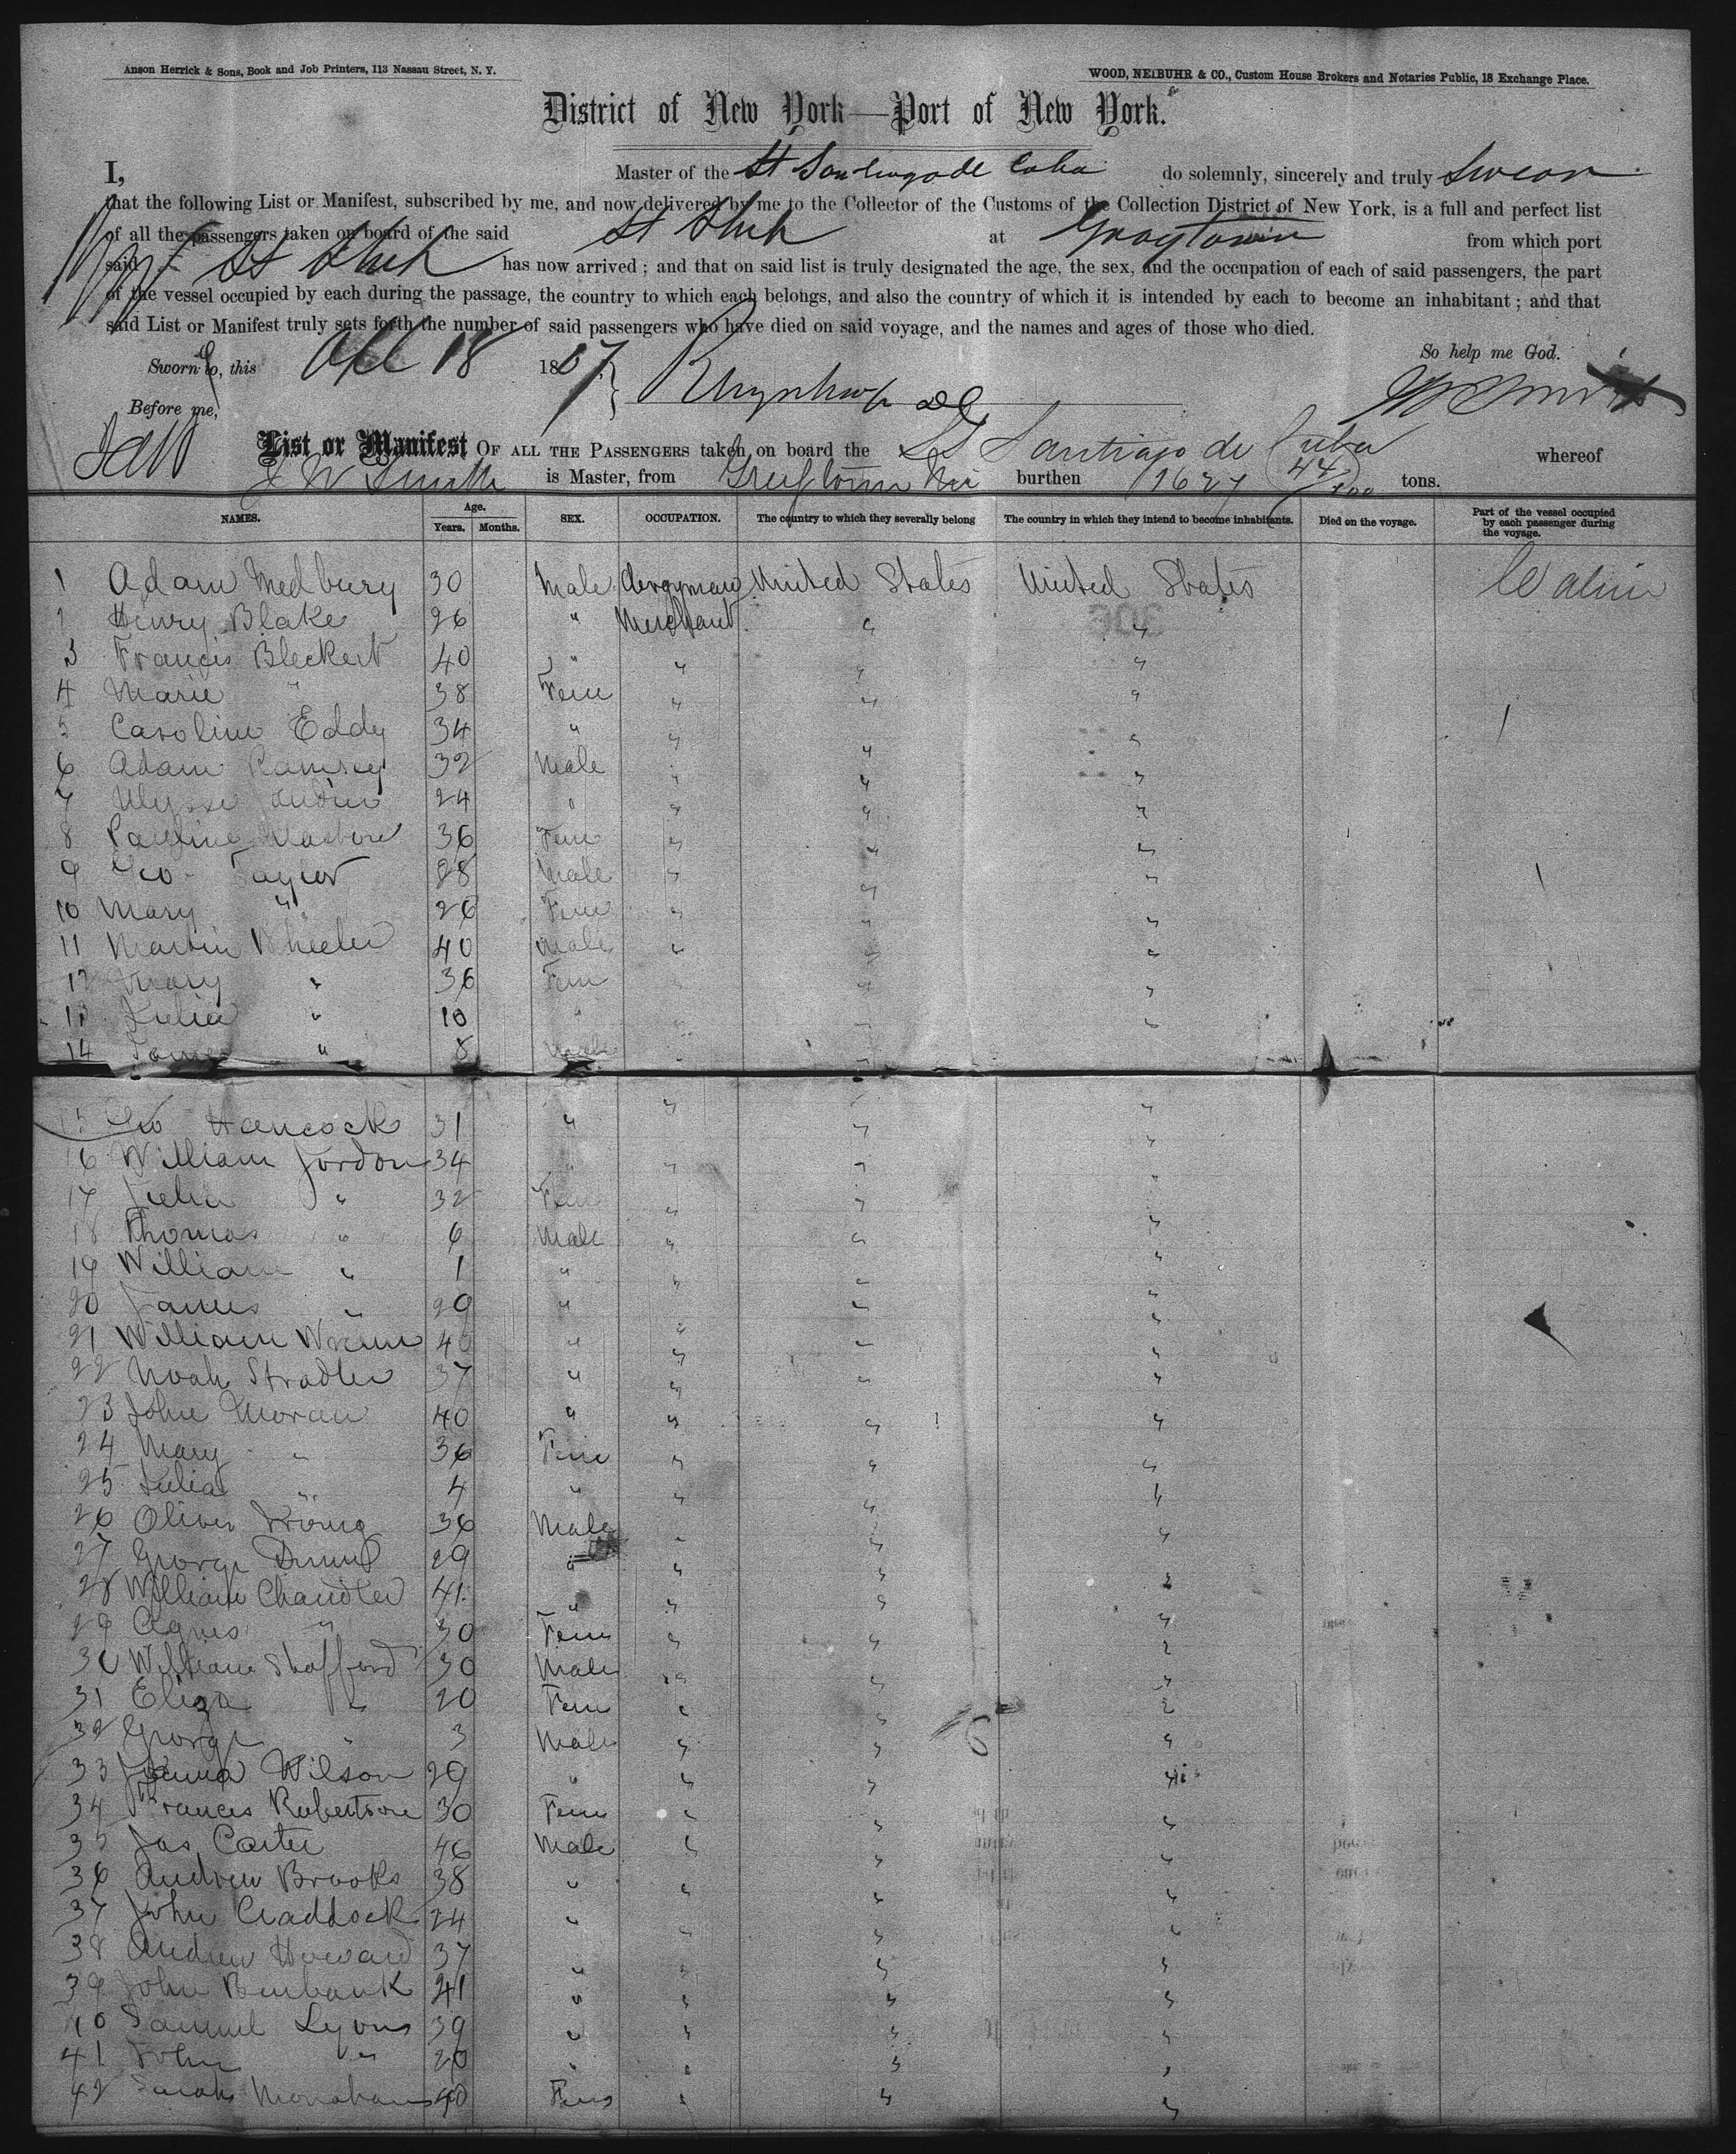 Anson Herrick & Sons, Book and Job Printers, 113 Nassau Street, N. Y.
WOOD, NEIBUHR & CO., Custom House Brokers and Notaries Public, 18 Exchange Place.
District of New York—Port of New York.
I, Master of the St Santiago de Cuba do solemnly, sincerely and truly Swear
that the following List or Manifest, subscribed by me, and now delivered by me to the Collector of the Customs of the Collection District of New York, is a full and perfect list
of all the passengers taken on board of the said St Ship at Greytown from which port
said St Ship has now arrived ; and that on said list is truly designated the age, the sex, and the occupation of each of said passengers, the part
of the vessel occupied by each during the passage, the country to which each belongs, and also the country of which it is intended by each to become an inhabitant ; and that
said List or Manifest truly sets forth the number of said passengers who have died on said voyage, and the names and ages of those who died.
So help me God.
Sworn to, this 18 1867
Before me,
List or Manifest OF ALL THE PASSENGERS taken on board the SS Santiago de Cuba whereof
J W Smith is Master, from Greytown Nic burthen 1627 44/100 tons.
NAMES. Age. Years. Months. SEX. OCCUPATION. The country to which they severally belong The country in which they intend to become inhabitants. Died on the voyage. Part of the vessel occupied by each passenger during the voyage.
1 Adam Medbury 30 Male Clergyman United States United States Cabin
2 Henry Blake 26 " Merchant " "
3 Francis Bleckert 40 " " " "
4 Marie " 38 Fem " " "
5 Caroline Eddy 34 " " " "
6 Adam Ramsey 32 Male " " "
7 Ulysse 24 " " " "
8 Pauline 36 Fem " " "
9 Geo Taylor 28 Male " " "
10 Mary " 26 Fem " " "
11 Martin Wheeler 40 Male " " "
12 Mary " 36 Fem " " "
13 Julia " 10 " " " "
14 " 8 Male " " "
15 Geo Hancock 31 " " " "
16 William Jordon 34 " " " "
17 Julia " 32 Fem " " "
18 Thomas " 6 Male " " "
19 William " 1 " " " "
20 James " 29 " " " "
21 William 40 " " " "
22 Noah Stradler 37 " " " "
23 John Moran 40 " " " "
24 Mary " 36 Fem " " "
25 Julia " 4 " " " "
26 Oliver 36 Male " " "
27 George 29 " " " "
28 William Chandler 41 " " " "
29 Agnes " 30 Fem " " "
30 William Stafford 30 Male " " "
31 Eliza " 20 Fem " " "
32 George " 3 Male " " "
33 Wilson 29 " " " "
34 Frances Robertson 30 Fem " " "
35 Jas Carter 46 Male " " "
36 Andrew Brooks 38 " " " "
37 John Craddock 24 " " " "
38 Andrew Howard 37 " " " "
39 John Burbank 41 " " " "
40 Samuel Lyons 39 " " " "
41 John " 20 " " " "
42 Sarah Monahan 40 Fem " " "